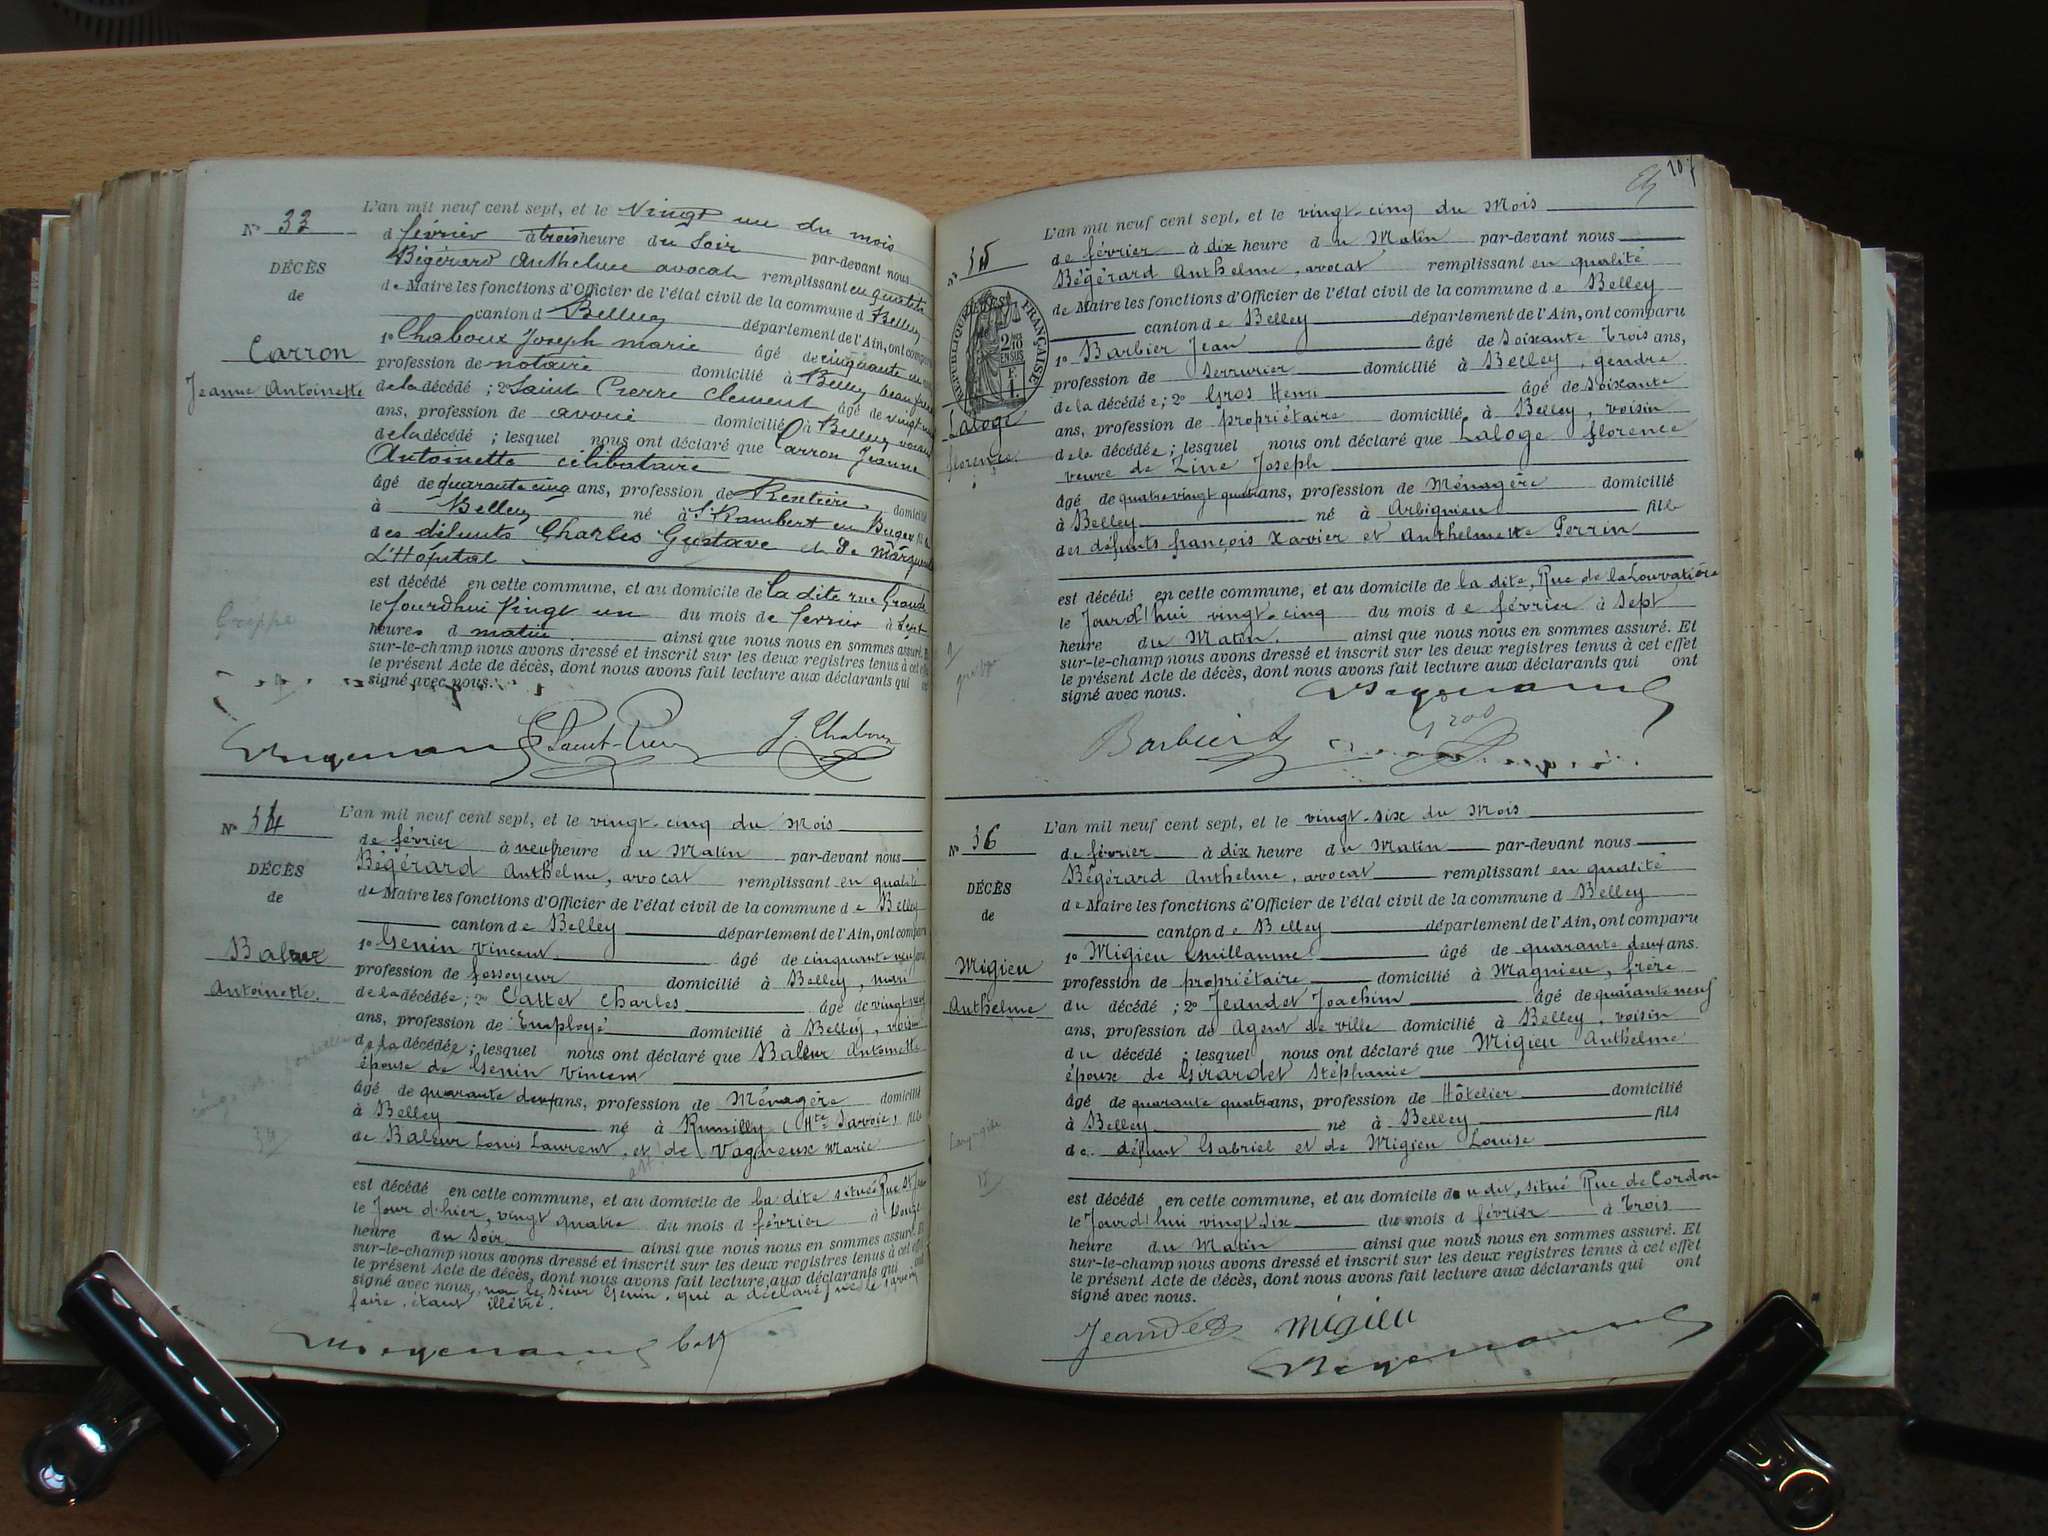 N° 33
DÉCÈS
de
Carron
Jeanne Antoinette
L'an mil neuf cent sept, et le Vingt un du mois
d février à trois heure du Soir par-devant nous
Bégérard Anthelme avocat remplissant en qualité
de Maire les fonctions d'Officier de l'état civil de la commune d Belley
canton d Belley département de l'Ain, ont comparu
1° Chaboux Joseph marie âgé de cinquante un
profession de notaire domicilié à Belley beau frère
de la décédé ; 2° Saint Pierre Clement âgé de vingt
ans, profession de avoué domicilié à Belley voisin
de la décédé ; lesquel nous ont déclaré que Carron Jeanne
Antoinette célibataire
âgé de quarante cinq ans, profession de Rentière domicilié
à Belley né à St Rambert en Bugey
des défunts Charles Gustave et De
L'Hôpital
est décédé en cette commune, et au domicile de la dite rue Grande
le jourdhui Vingt un du mois de février à sept
heures d matin ainsi que nous nous en sommes assuré. Et
sur-le-champ nous avons dressé et inscrit sur les deux registres tenus à cet effet
le présent Acte de décès, dont nous avons fait lecture aux déclarants qui ont
signé avec nous.
Grippe
Saint-Pierre J. Chaboux
N° 34
DÉCÈS
de
Baleur
Antoinette.
L'an mil neuf cent sept, et le vingt-cinq du Mois
de février à neuf heure du Matin par-devant nous
Bégérard Anthelme, avocat remplissant en qualité
de Maire les fonctions d'Officier de l'état civil de la commune de Belley
canton de Belley département de l'Ain, ont comparu
1° Genin Vincent âgé de cinquante neuf ans,
profession de fossoyeur domicilié à Belley, mari
de la décédée ; 2° Cattet Charles âgé de vingt neuf
ans, profession de Employé domicilié à Belley, voisin
de la décédée ; lesquel nous ont déclaré que Baleur Antoinette
épouse de Genin Vincent
âgé de quarante deux ans, profession de Ménagère domicilié
à Belley né à Rumilly (Hte Savoie) fille
de Baleur Louis Laurent, et de Vagneux Marie
est décédé en cette commune, et au domicile de la dite situé Rue St Jean
le Jour d'hier, vingt quatre du mois d février à Douze
heure du Soir ainsi que nous nous en sommes assuré. Et
sur-le-champ nous avons dressé et inscrit sur les deux registres tenus à cet effet
le présent Acte de décès, dont nous avons fait lecture aux déclarants qui ont
signé avec nous, non le sieur Genin, qui a déclaré ne le savoir
faire, étant illétré.
N° 35
RÉPUBLIQUE FRANÇAISE
2/10 EN SUS
Laloge
florence
L'an mil neuf cent sept, et le vingt-cinq du Mois
de février à dix heure du Matin par-devant nous
Bégérard Anthelme, avocat remplissant en qualité
de Maire les fonctions d'Officier de l'état civil de la commune de Belley
canton de Belley département de l'Ain, ont comparu
1° Barbier Jean âgé de Soixante Trois ans,
profession de Serrurier domicilié à Belley, gendre
de la décédée ; 2° Gros Henri âgé de soixante
ans, profession de propriétaire domicilié à Belley, voisin
de la décédée ; lesquel nous ont déclaré que Laloge florence
veuve de Zine Joseph
âgé de quatre vingt quatre ans, profession de Ménagère domicilié
à Belley né à Arbignieu fille
des défunts françois Xavier et Anthelmette Perrin
est décédé en cette commune, et au domicile de la dite, Rue de la Louvatière
le Jourd'hui vingt-cinq du mois de février à Sept
heure du Matin. ainsi que nous nous en sommes assuré. Et
sur-le-champ nous avons dressé et inscrit sur les deux registres tenus à cet effet
le présent Acte de décès, dont nous avons fait lecture aux déclarants qui ont
signé avec nous.
Barbier Gros
N° 36
DÉCÈS
de
Migieu
Anthelme
L'an mil neuf cent sept, et le vingt-six du Mois
de février à dix heure du Matin par-devant nous
Bégérard Anthelme, avocat remplissant en qualité
de Maire les fonctions d'Officier de l'état civil de la commune d Belley
canton de Belley département de l'Ain, ont comparu
1° Migieu âgé de quarante deux ans.
profession de propriétaire domicilié à Magnieu, frère
du décédé ; 2° Jeandet Joachim âgé de quarante neuf
ans, profession de Agent de ville domicilié à Belley, voisin
du décédé ; lesquel nous ont déclaré que Migieu Anthelme
époux de Girardet Stéphanie
âgé de quarante quatre ans, profession de Hôtelier domicilié
à Belley né à Belley fils
de défunt Gabriel et de Migieu Louise
est décédé en cette commune, et au domicile du dit, situé Rue de Cordon
le Jourd'hui vingt six du mois d février à Trois
heure du Matin ainsi que nous nous en sommes assuré. Et
sur-le-champ nous avons dressé et inscrit sur les deux registres tenus à cet effet
le présent Acte de décès, dont nous avons fait lecture aux déclarants qui ont
signé avec nous.
Jeandet Migieu